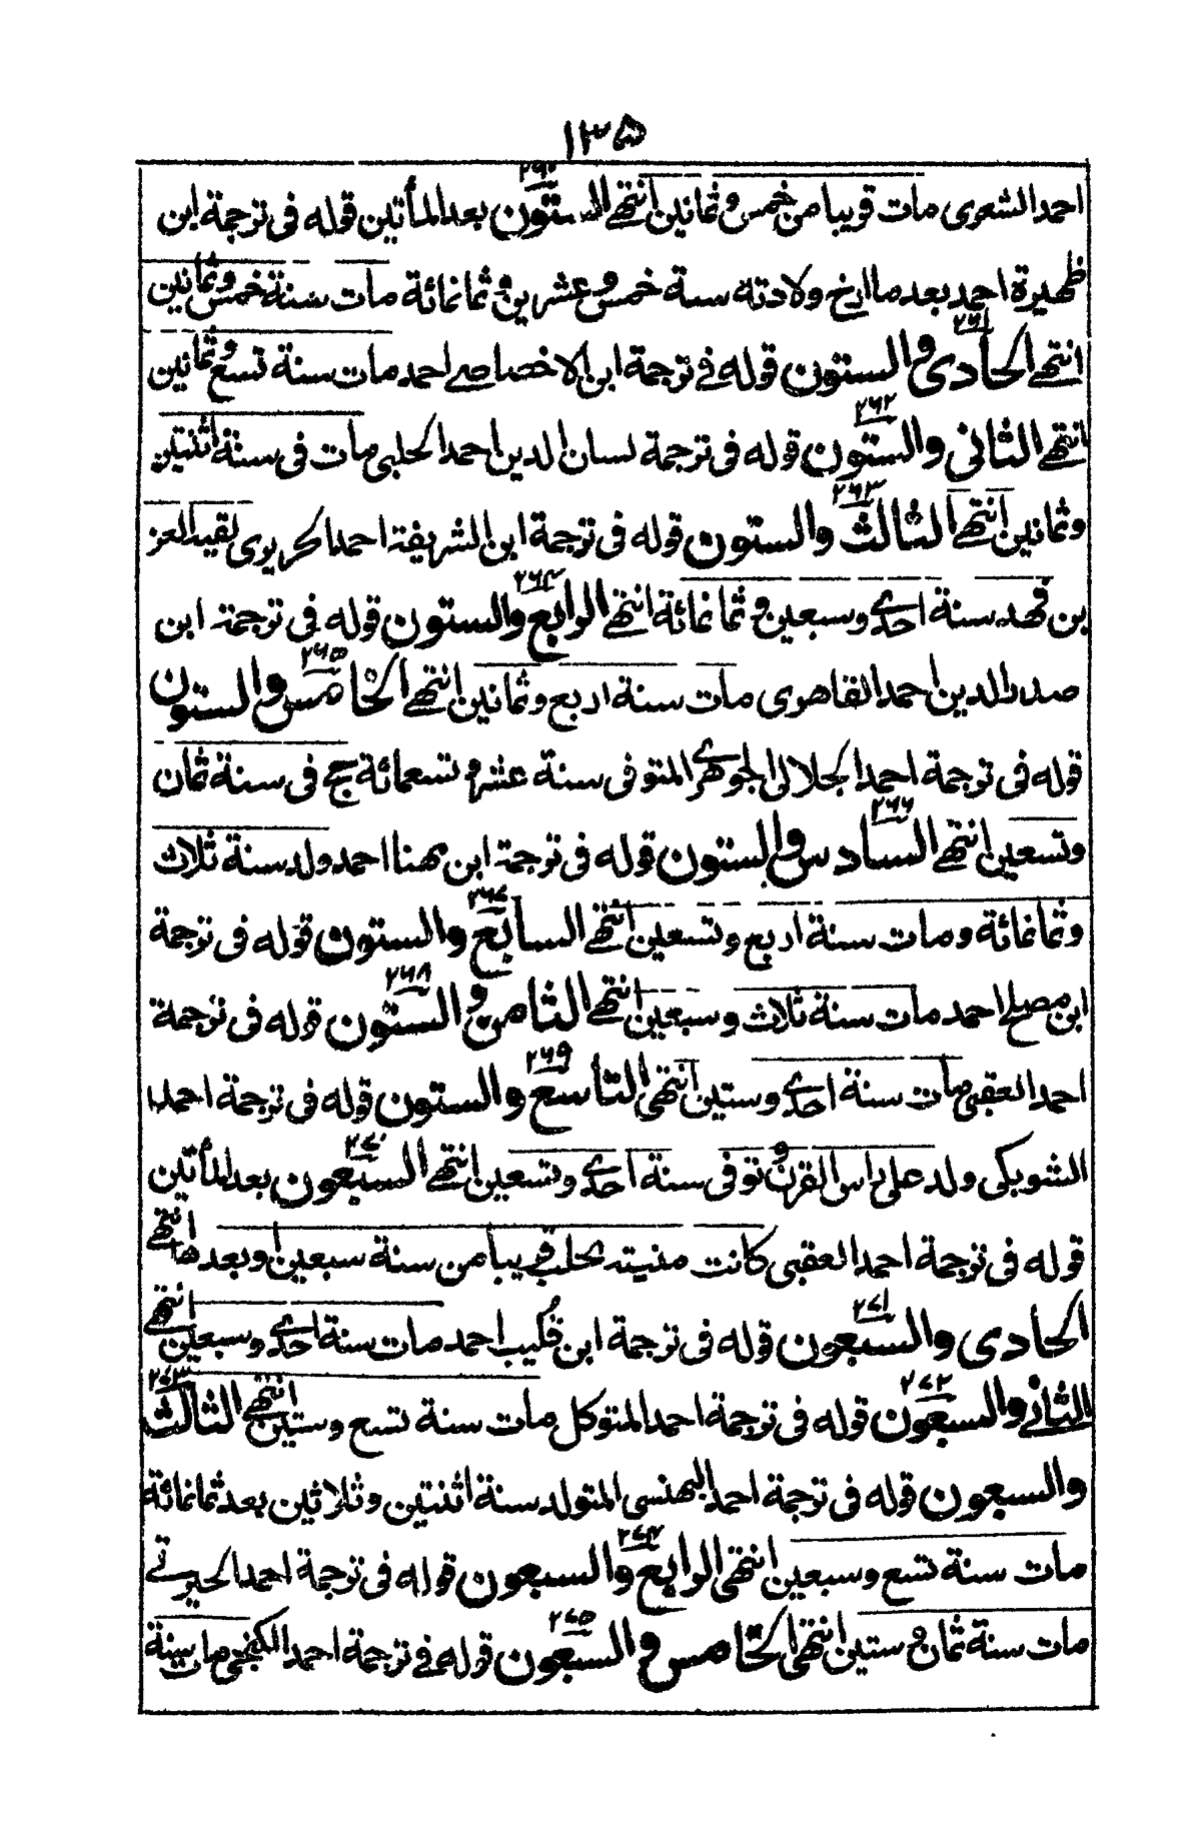 ١٣٥
احمد الشعرى مات قريبا من خمس وثمانين انتهى الستون بعد المأتين قوله فى ترجمة ابن
٢٦٠
ظهيرة احمد بعد ما ارخ ولادته سنة خمس وعشرين وثمانمائة مات سنة خمس وثمانين
انتهى الحادى والستون قوله فى ترجمة ابن الاخصاصى احمد مات سنة تسع وثمانين
٢٦١
انتهى الثانى والستون قوله فى ترجمة لسان الدين احمد الحلبى مات فى سنة اثنتين
٢٦٢
وثمانين انتهى الثالث والستون قوله فى ترجمة ابن الشريفة احمد الحريرى لقيه العز
٢٦٣
بن فهد سنة احدى وسبعين وثمانمائة انتهى الرابع والستون قوله فى ترجمة ابن
٢٦٤
صدر الدين احمد القاهرى مات سنة اربع وثمانين انتهى الخامس والستون
٢٦٥
قوله فى ترجمة احمد الجلالى الجوهرى المتوفى سنة عشر وتسعمائة حج فى سنة ثمان
وتسعين انتهى السادس والستون قوله فى ترجمة ابن مهنا احمد ولد سنة ثلاث
٢٦٦
وثمانمائة ومات سنة اربع وتسعين انتهى السابع والستون قوله فى ترجمة
٢٦٧
ابن مصلح احمد مات سنة ثلاث وسبعين انتهى الثامن والستون قوله فى ترجمة
٢٦٨
احمد العقبى مات سنة احدى وستين انتهى التاسع والستون قوله فى ترجمة احمد
٢٦٩
الشوبكى ولد على راس القرن وتوفى سنة احدى وتسعين انتهى السبعون بعد المأتين
٢٧٠
قوله فى ترجمة احمد العقبى كانت منيته بحلب قريبا من سنة سبعين اوبعدها انتهى
الحادى والسبعون قوله فى ترجمة ابن فكيب احمد مات سنة احدى وسبعين انتهى
٢٧١
الثانى والسبعون قوله فى ترجمة احمد المتوكل مات سنة تسع وستين انتهى الثالث
٢٧٢ ٢٧٣
والسبعون قوله فى ترجمة احمد البهنسى المتولد سنة اثنتين وثلاثين بعد ثمانمائة
مات سنة تسع وسبعين انتهى الرابع والسبعون قوله فى ترجمة احمد الحيرتى
٢٧٤
مات سنة ثمان وستين انتهى الخامس والسبعون قوله فى ترجمة احمد الكنجى مات سنة
٢٧٥